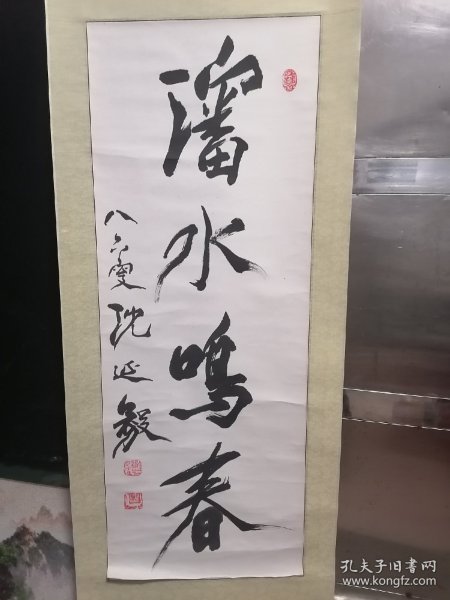 瀋水鳴春
八六叟沈延毅
孔夫子旧书网
www.kongfz.com